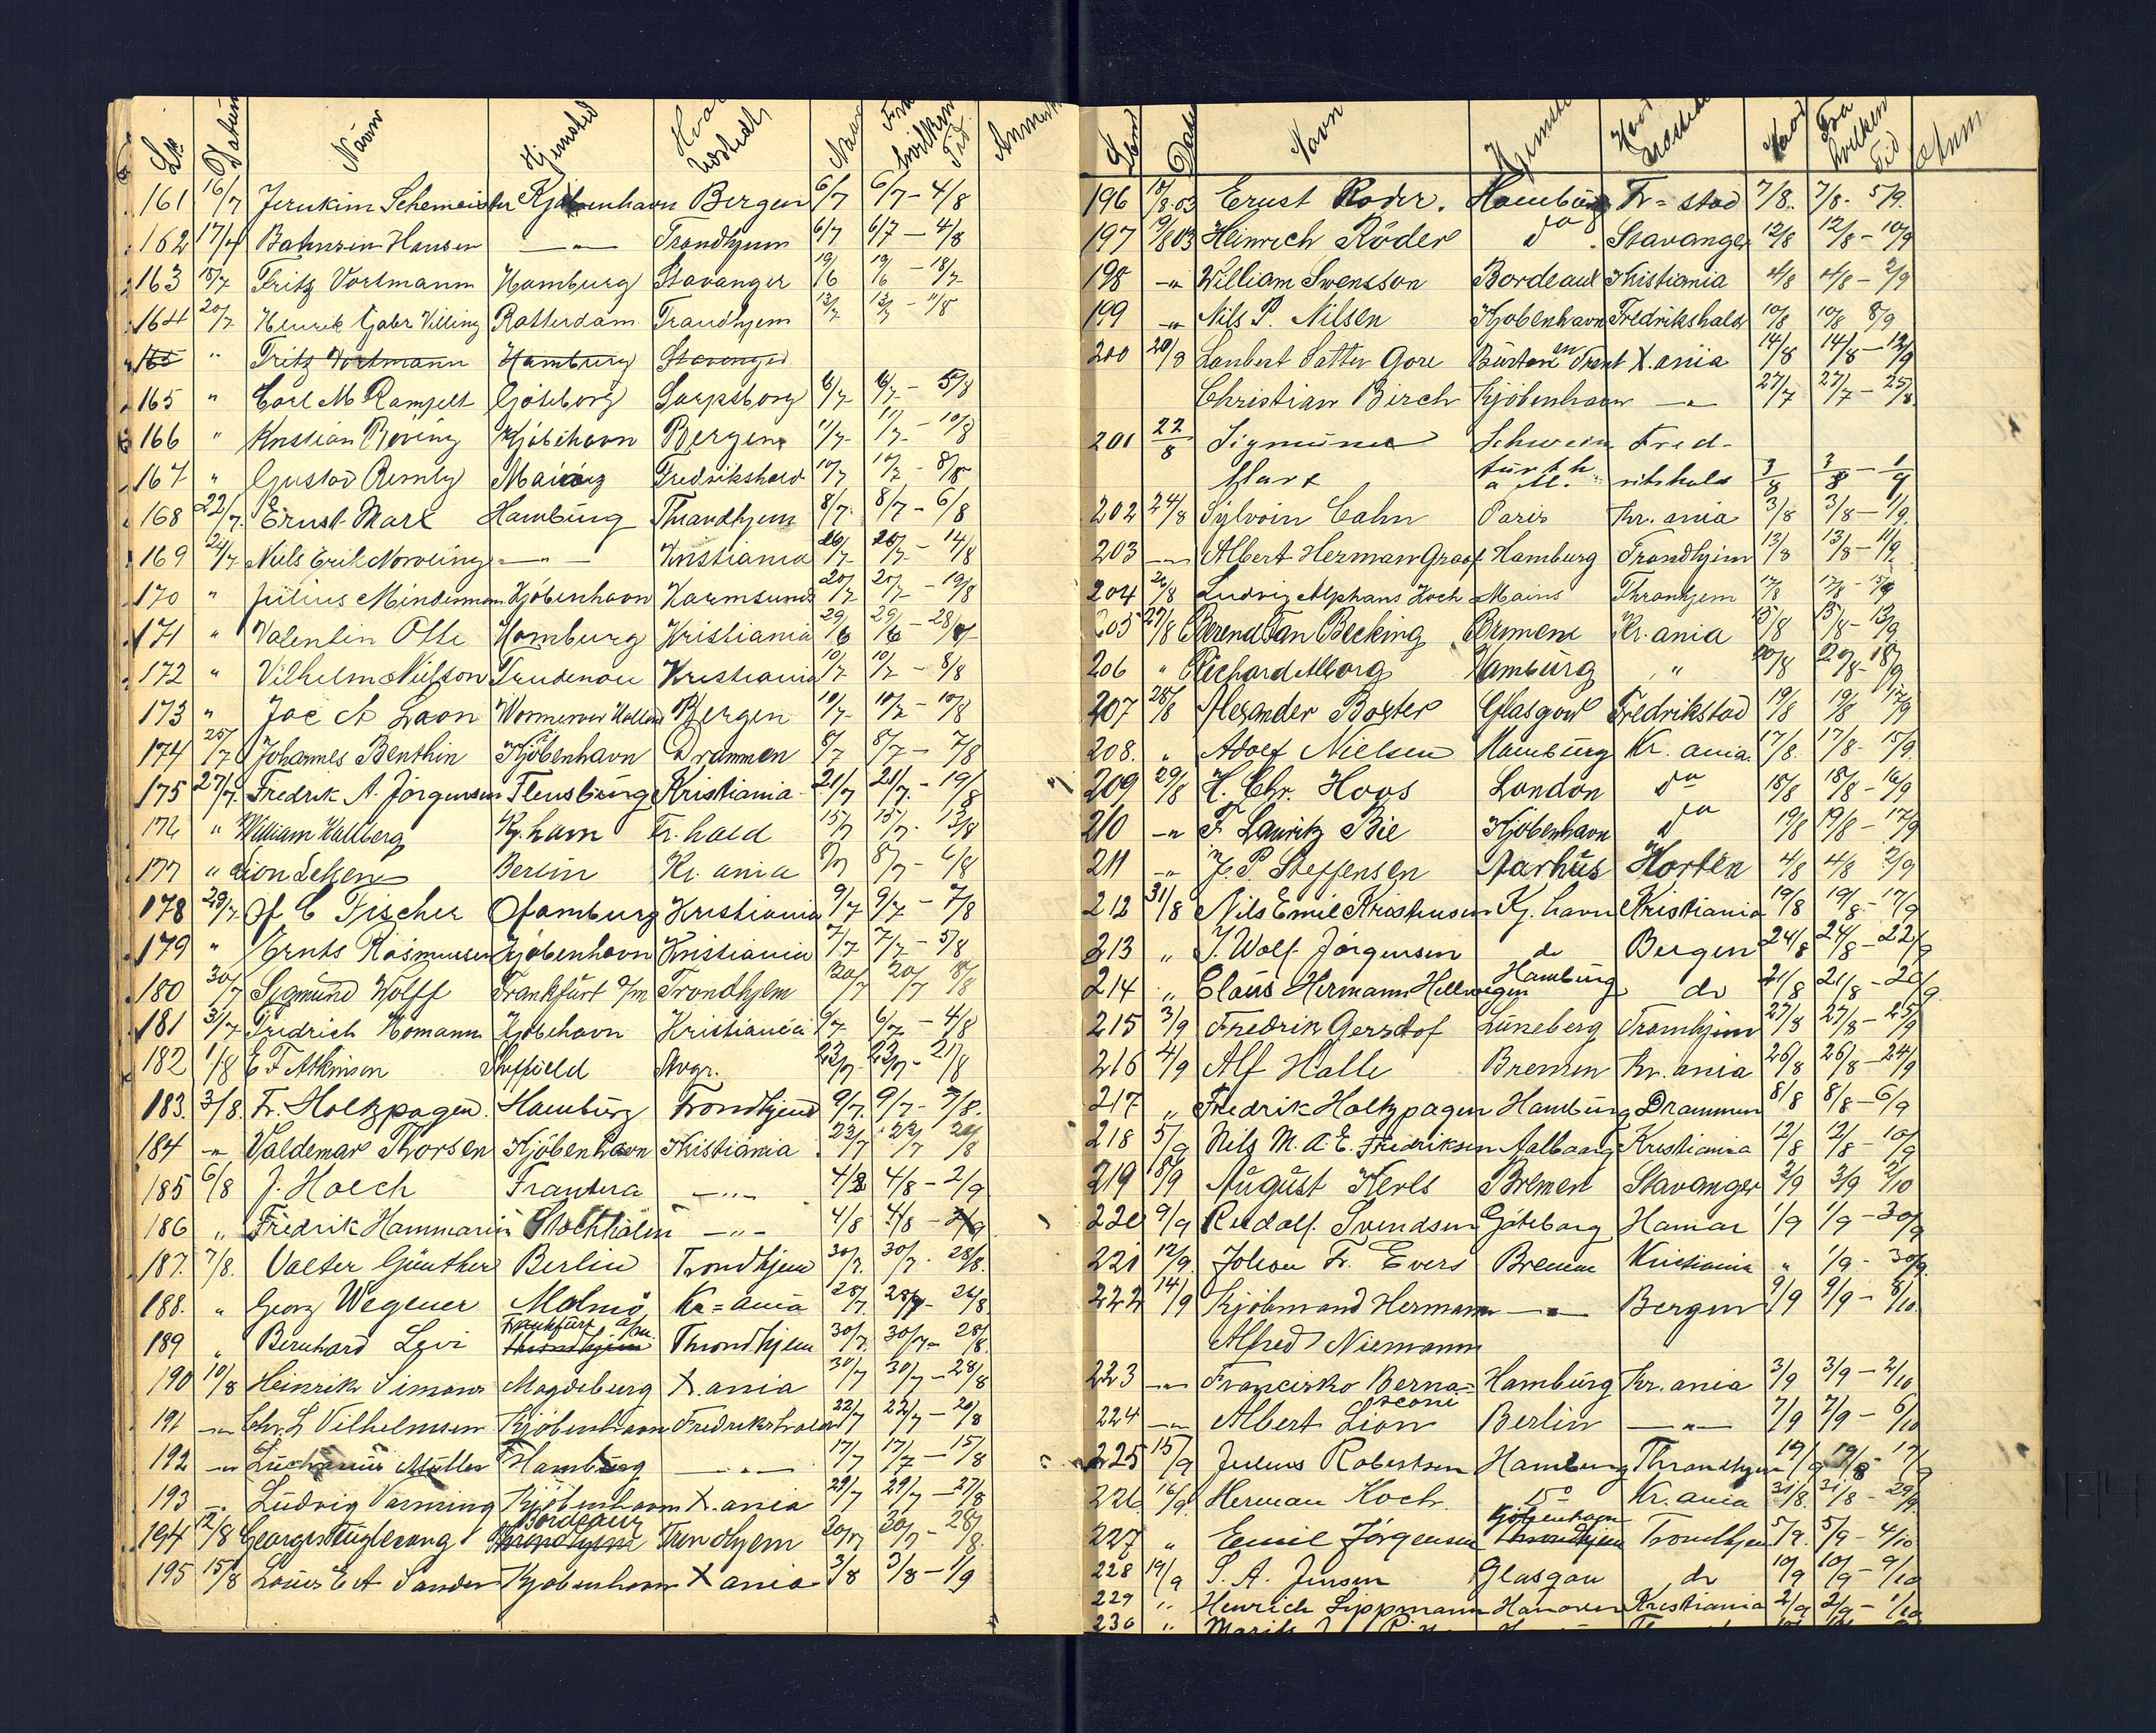 Datum Navn Hjemsted Hvor udstedt Naar Fra hvilken Tid Anmerk
161 16/7 Jenukim Schemeister Kjøbenhavn Bergen 6/7 6/7 - 4/8
162 17/7 Bahnsen Hansen —"— Trondhjem 6/7 6/7 - 4/8
163 18/7 Fritz Vortmann Hamburg Stavanger 19/6 19/6 - 18/7
164 20/7 Henrik Gabr Villing Rotterdam Trondhjem 13/7 13/7 - 11/8
165 " Fritz Vortmann Hamburg Stavanger
165 " Carl M Rampelt Göteborg Sarpsborg 6/7 6/7 - 5/8
166 " Kristian Böving Kjöbehavn Bergen 11/7 11/7 - 10/8
167 " Gustav Remly Fredrikshald 10/7 10/7 - 8/8
168 22/7 Ernst Marx Hamburg Throndhjem 8/7 8/7 - 6/8
169 24/7 Niels Erik Norveling —"— Kristiania 20/7 - 14/8
170 " Julius Mindermann Kjöbenhavn Karmsund 20/7 20/7 - 19/8
171 " Valentin Otte Homburg Kristiania 29/6 29/6 - 28/7
172 " Vilhelm Nielson Trudenau Kristiania 10/7 10/7 - 8/8
173 " Joc A Laan Wormerveer Holland Bergen 10/7 10/7 - 10/8
174 25/7 Johannes Benthin Kjöbenhavn Drammen 8/7 8/7 - 7/8
175 27/7 Fredrik A. Jörgensen Flensburg Kristiania 21/7 21/7 - 19/8
176 " William Wallberg Kj.havn Fr. hald 15/7 15/7 - 13/8
177 " Berlin Kr. ania 8/7 8/7 - 6/8
178 29/7 H C Fischer Hamburg Kristiania 9/7 9/7 - 7/8
179 " Ernts Rasmussen Kjöbenhavn Kristiania 7/7 7/7 - 5/8
180 30/7 Sigmund Wolff Frankfurt a/m Trondhjem 20/7 20/7 18/8
181 31/7 Fredrich Homann Kjöbehavn Kristiania 6/7 6/7 - 4/8
182 1/8 E F Atkinson Sheffield Stvgr. 23/7 23/7 - 21/8
183. 3/8. Fr. Holtzpagen. Hamburg Trondhjem 9/7. 9/7 - 7/8.
184 —"— Valdemar Thorsen Kjöbenhavn Kristiania 22/7 22/7 20/8
185 6/8 J. Hoech Frantera —"— 4/8 4/8 - 2/9
186 " Fredrik Hammarin Stockholm —"— 4/8 4/8 - 2/9
187. 7/8. Valter Günther Berlin Trondhjem 30/7. 30/7. 28/8.
188. " Georg Wegener Malmö Kr=ania 28/7. 28/7 - 26/8
189 " Bernhard Levi Frankfurt a/m. Throndhjem Throndhjem 30/7. 30/7 - 28/8.
190 10/8 Heinrik Simons Magdeburg X.ania 30/7 30/7 - 28/8
191 —"— Chr. L Vilhelmsen Kjöbenhavn Fredrikshald 22/7 22/7 - 20/8
192 —"— Müller Hamburg —"— 17/7 17/7 - 15/8
193 —"— Ludvig Varming Kjöbenhavn X.ania 29/7 29/7 - 27/8
194 12/8 Georges Bordeaux Trondhjem Trondhjem 30/7 30/7 - 28/8.
195 15/8 Louis E A Sander Kjøbenhavn X ania 3/8 3/8 - 1/9
Navn Hjemsted Hvor udstedt Naar Fra hvilken Tid Anm
196 18/8.03 Ernst Roder. Hamburg Fr=stad 7/8. 7/8. 5/9.
197 19/8 03 Heinrich Röder do. Stavanger 12/8 12/8 - 10/9
198 —"— William Swensson Bordeaux Kristiania 4/8 4/8 - 2/9
199 —"— Nils P. Nilsen Kjobenhavn Fredrikshald 10/8 10/8 8/9
200 20/8 Lambert Satter Gore Burton on Trent X.ania 14/8 14/8 - 12/9
Christian Birch Kjöbenhavn —"— 27/7 27/7 - 25/8.
201 22/8 Sigmund Schwein Fred-
Marx furth a M. rikshald 3/8 3/8 - 1/9
202 24/8 Sylvain Cahn Paris Kr. ania 3/8 3/8 - 1/9.
203 —"— Albert Herman Graaf Hamburg Trondhjem 13/8 13/8 - 11/9.
204 26/8 Ludvig Alphans Koch Mains Thronhjem 17/8 17/8 - 15/9
205 27/8 Berend Van Becking Bremen Kr. ania 15/8 15/8 - 13/9
206 " Richard Alborg Hamburg " 20/8 20/8 - 18/9
207 28/8 Alexander Boxter Glasgow Fredrikstad 19/8 19/8 17/9
208. " Adolf Nielsen Hamburg Kr. ania. 17/8. 17/8 - 15/9.
209 29/8 H. Chr. Hoos London do 18/8 18/8 - 16/9
210 —"— F. Lauritz Bie Kjöbenhavn do 19/8 19/8 - 17/9
211 —"— J. P. Steffensen Aarhus Horten 4/8 4/8 2/9
212 31/8 Nils Emil Kristensen Kj. havn Kristiania 19/8 19/8 - 17/9
213 " J. Wolf Jörgensen do Bergen 24/8 24/8 - 22/9
214 " Claus Hermann Hellwegen Hamburg do 21/8 21/8 - 20/9.
215 3/9 Fredrik Gersdof Lüneberg Tromhjem 27/8 27/8 - 25/9
216 4/9 Alf Halle Bremen Kr. ania 26/8 26/8 - 24/9
217 " Fredrik Holtzpagen Hamburg Drammen 8/8 8/8 - 6/9
218 5/9 Nils M. A. E. Fredriksen Aalborg Kristiania 12/8 12/8 - 10/9
219 8/9 August Kerls Bremen Stavanger 3/9 3/9 2/10
220 9/9 Rudolf Svendsen Göteborg Hamar 1/9 1/9 - 30/9
221 12/9. Johan Fr. Evers Bremen Kristiania " 1/9 - 30/9.
222 14/9 Kjöbmand Hermann —"— Bergen 9/9 9/9 - 8/10
Alfred Niemann
223 —"— Francisko Berna= Hamburg Kr. ania 3/9 3/9 - 2/10
sconi
224 —"— Albert Lion Berlin —"— 7/9 7/9 - 6/10
225 15/9 Julius Robertson Hamburg Throndhjem 19/8 - 17/9
226 16/9 Herman Koch. Do Kr. ania 31/8. 31/8 - 29/9.
227 " Emil Jörgensen Kjöbenhavn Throndhjem Trondhjem 5/9. 5/9 - 4/10
228 19/9 S. A. Jensen Glasgau do 10/9 10/9 - 9/10
229 " Henrich Lippmann Hanover Kristiania 2/9 2/9 - 1/10
230 "